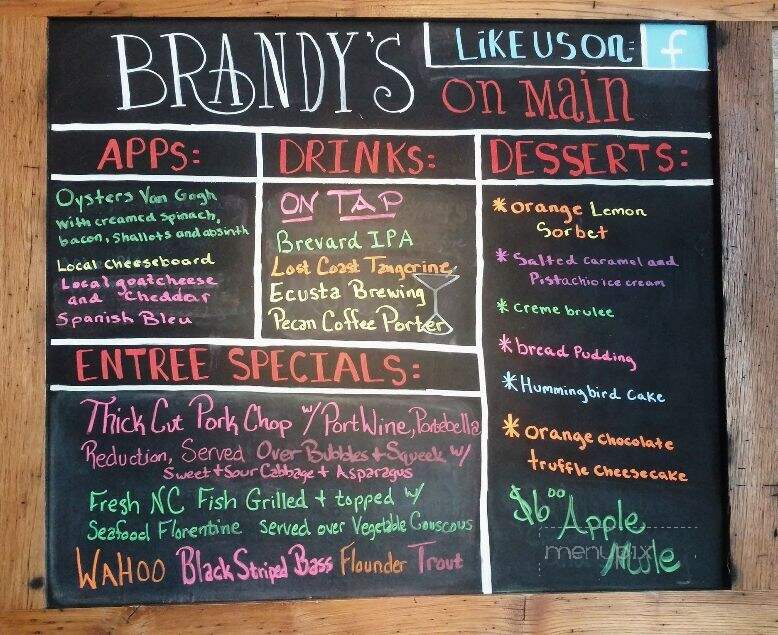 BRANDY'S
LIKE US ON: f
ON MAIN
APPS:
Oysters Van Gogh
with creamed spinach,
bacon, Shallots and absinth
Local cheeseboard
Local goatcheese
and cheddar
Spanish Bleu
DRINKS:
ON TAP
Brevard IPA
Lost Coast Tangerine
Ecusta Brewing
Pecan Coffee Porter
DESSERTS:
* Orange Lemon
Sorbet
* Salted caramel and
Pistachio ice cream
* creme brulee
* bread Pudding
* Hummingbird Cake
* Orange chocolate
truffle cheesecake
$6.00 Apple
Mule
ENTREE SPECIALS:
Thick Cut Pork Chop w/ Port Wine, Portebella
Reduction, Served Over Bubbles + Squeek w/
Sweet + Sour Cabbage + Asparagus
Fresh NC Fish Grilled + topped w/
Seafood Florentine served over Vegetable Couscous
WAHOO Black Striped Bass Flounder Trout
menupix